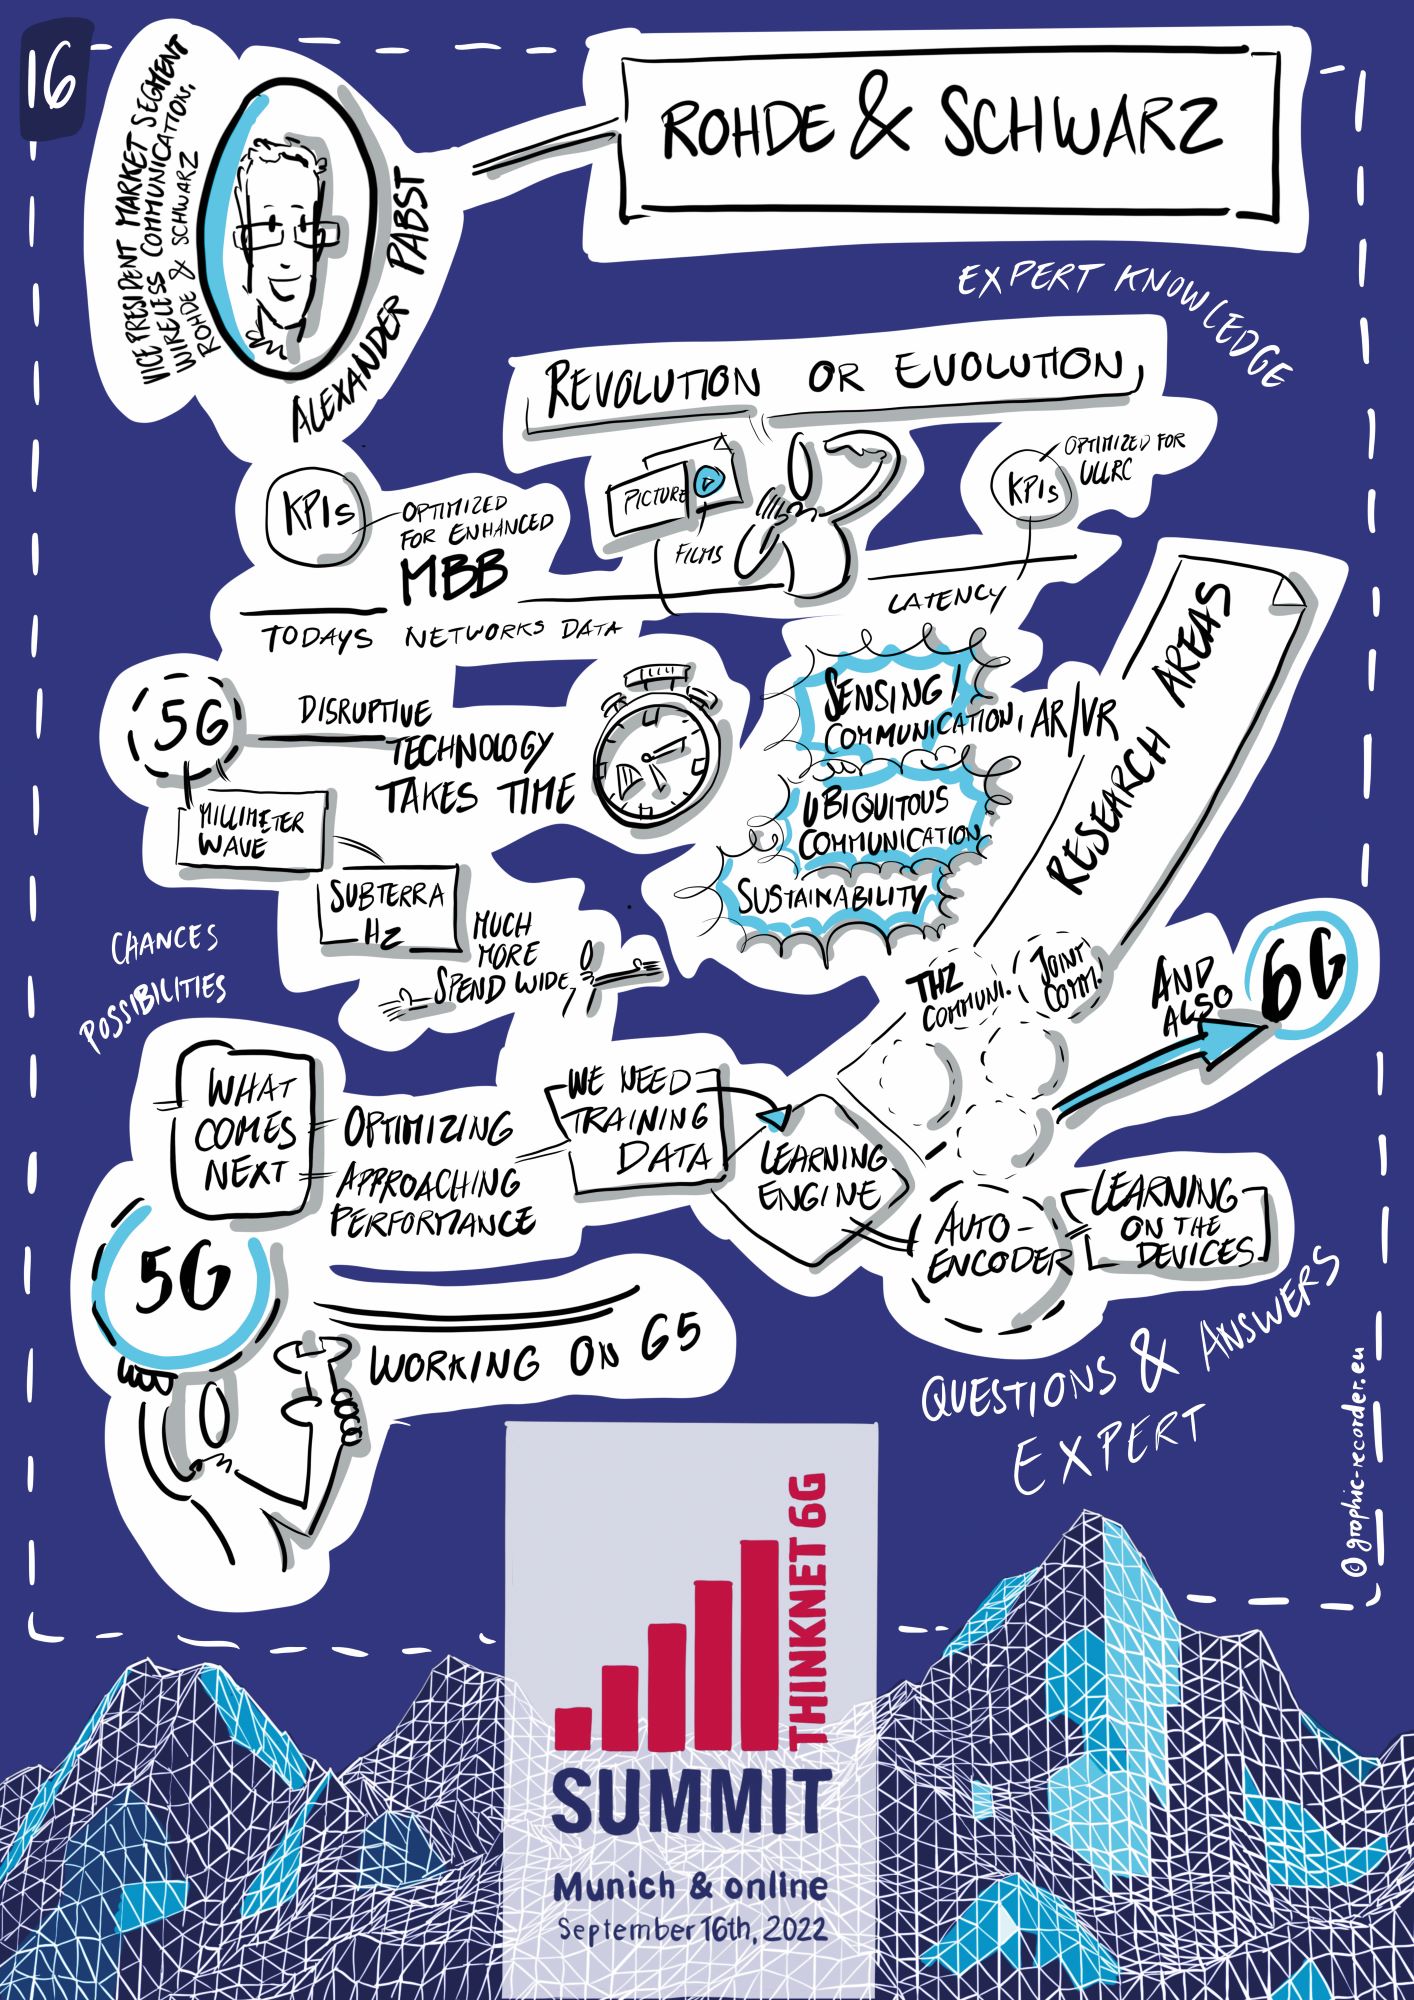 16
VICE PRESIDENT MARKET SEGMENT
WIRELESS COMMUNICATION,
ROHDE & SCHWARZ
ALEXANDER PABST
ROHDE & SCHWARZ
EXPERT KNOWLEDGE
REVOLUTION OR EVOLUTION
KPIs
OPTIMIZED
FOR ENHANCED
MBB
PICTURE
FILMS
KPIs
OPTIMIZED FOR
ULLRC
TODAYS NETWORKS DATA
LATENCY
5G
DISRUPTIVE
TECHNOLOGY
TAKES TIME
MILLIMETER
WAVE
SUBTERRA
HZ
MUCH
MORE
SPEND WIDE,
SENSING/
COMMUNICATION, AR/VR
UBIQUITOUS
COMMUNICATION
SUSTAINABILITY
RESEARCH AREAS
THZ
COMMUNI.
JOINT
COMM.
AND
ALSO
6G
CHANCES
POSSIBILITIES
WHAT
COMES
NEXT
OPTIMIZING
APPROACHING
PERFORMANCE
WE NEED
TRAINING
DATA
LEARNING
ENGINE
AUTO-
ENCODER
LEARNING
ON THE
DEVICES
5G
WORKING ON G5
QUESTIONS & ANSWERS
EXPERT
© graphic-recorder.eu
THINKNET 6G
SUMMIT
Munich & online
September 16th, 2022